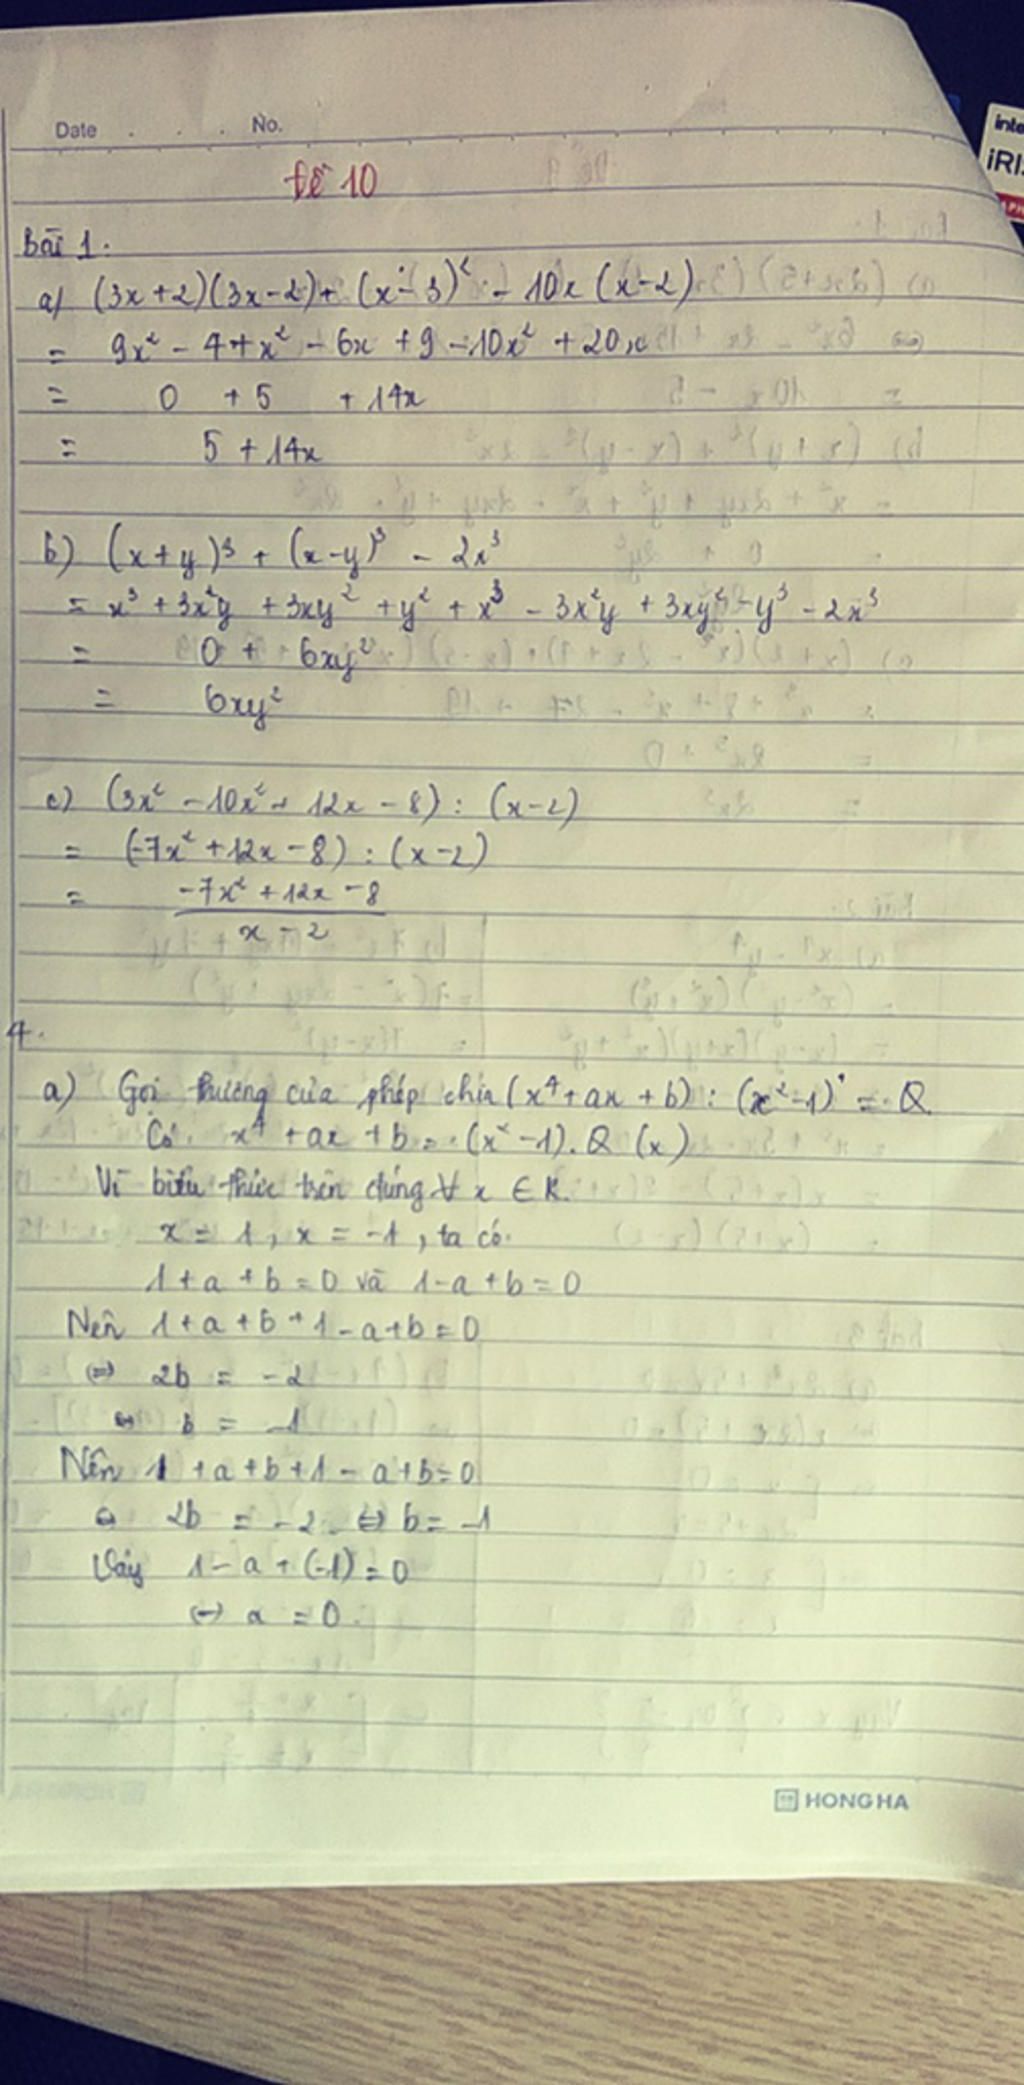 Date . . . No.
Đề 10
Bài 1:
a) (3x+2)(3x-2)+(x-3)² - 10x(x-2)
= 9x² - 4+x² - 6x +9 -10x² +20x
= 0 +5 +14x
= 5 +14x
b) (x+y)³ + (x-y)³ - 2x³
= x³ +3x²y +3xy² +y² + x³ - 3x²y + 3xy² -y³ - 2x³
= 0 + 6xy²
= 6xy²
c) (3x² -10x² + 12x - 8) : (x-2)
= (-7x² +12x - 8) : (x-2)
= -7x² +12x -8
x - 2
4.
a) Gọi thương của phép chia (x⁴+ax +b) : (x²-1) = Q
Có x⁴ +ax +b = (x² -1). Q (x)
Vì biểu thức trên đúng ∀ x ∈ R.
x = 1, x = -1, ta có
1+a +b =0 và 1-a +b =0
Nên 1+a+b +1 -a+b =0
⇔ 2b = -2
⇔ b = -1
Nên 1 +a+b+1 - a+b=0
⇔ 2b = -2 ⇔ b= -1
Vậy 1-a + (-1) =0
⇔ a =0.
HONG HA
inte
iRI